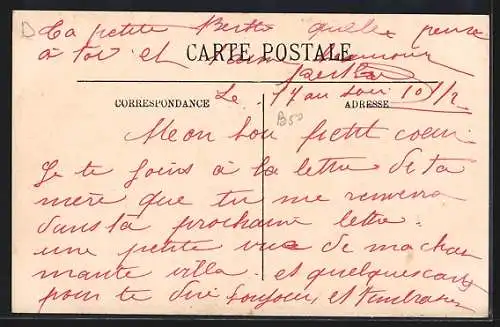 ta petite Berthe quelle pense
à toi et
CARTE POSTALE
Berthe
Le 17 au soir 10/2
CORRESPONDANCE
ADRESSE
B50
Meon bon petit coeur
Je te joins à la lettre de ta
mère que tu me renverra
dans ta prochaine lettre.
une petite vue de ma char
mante villa. et quelques
pour te dire toujours, et t'embrasser